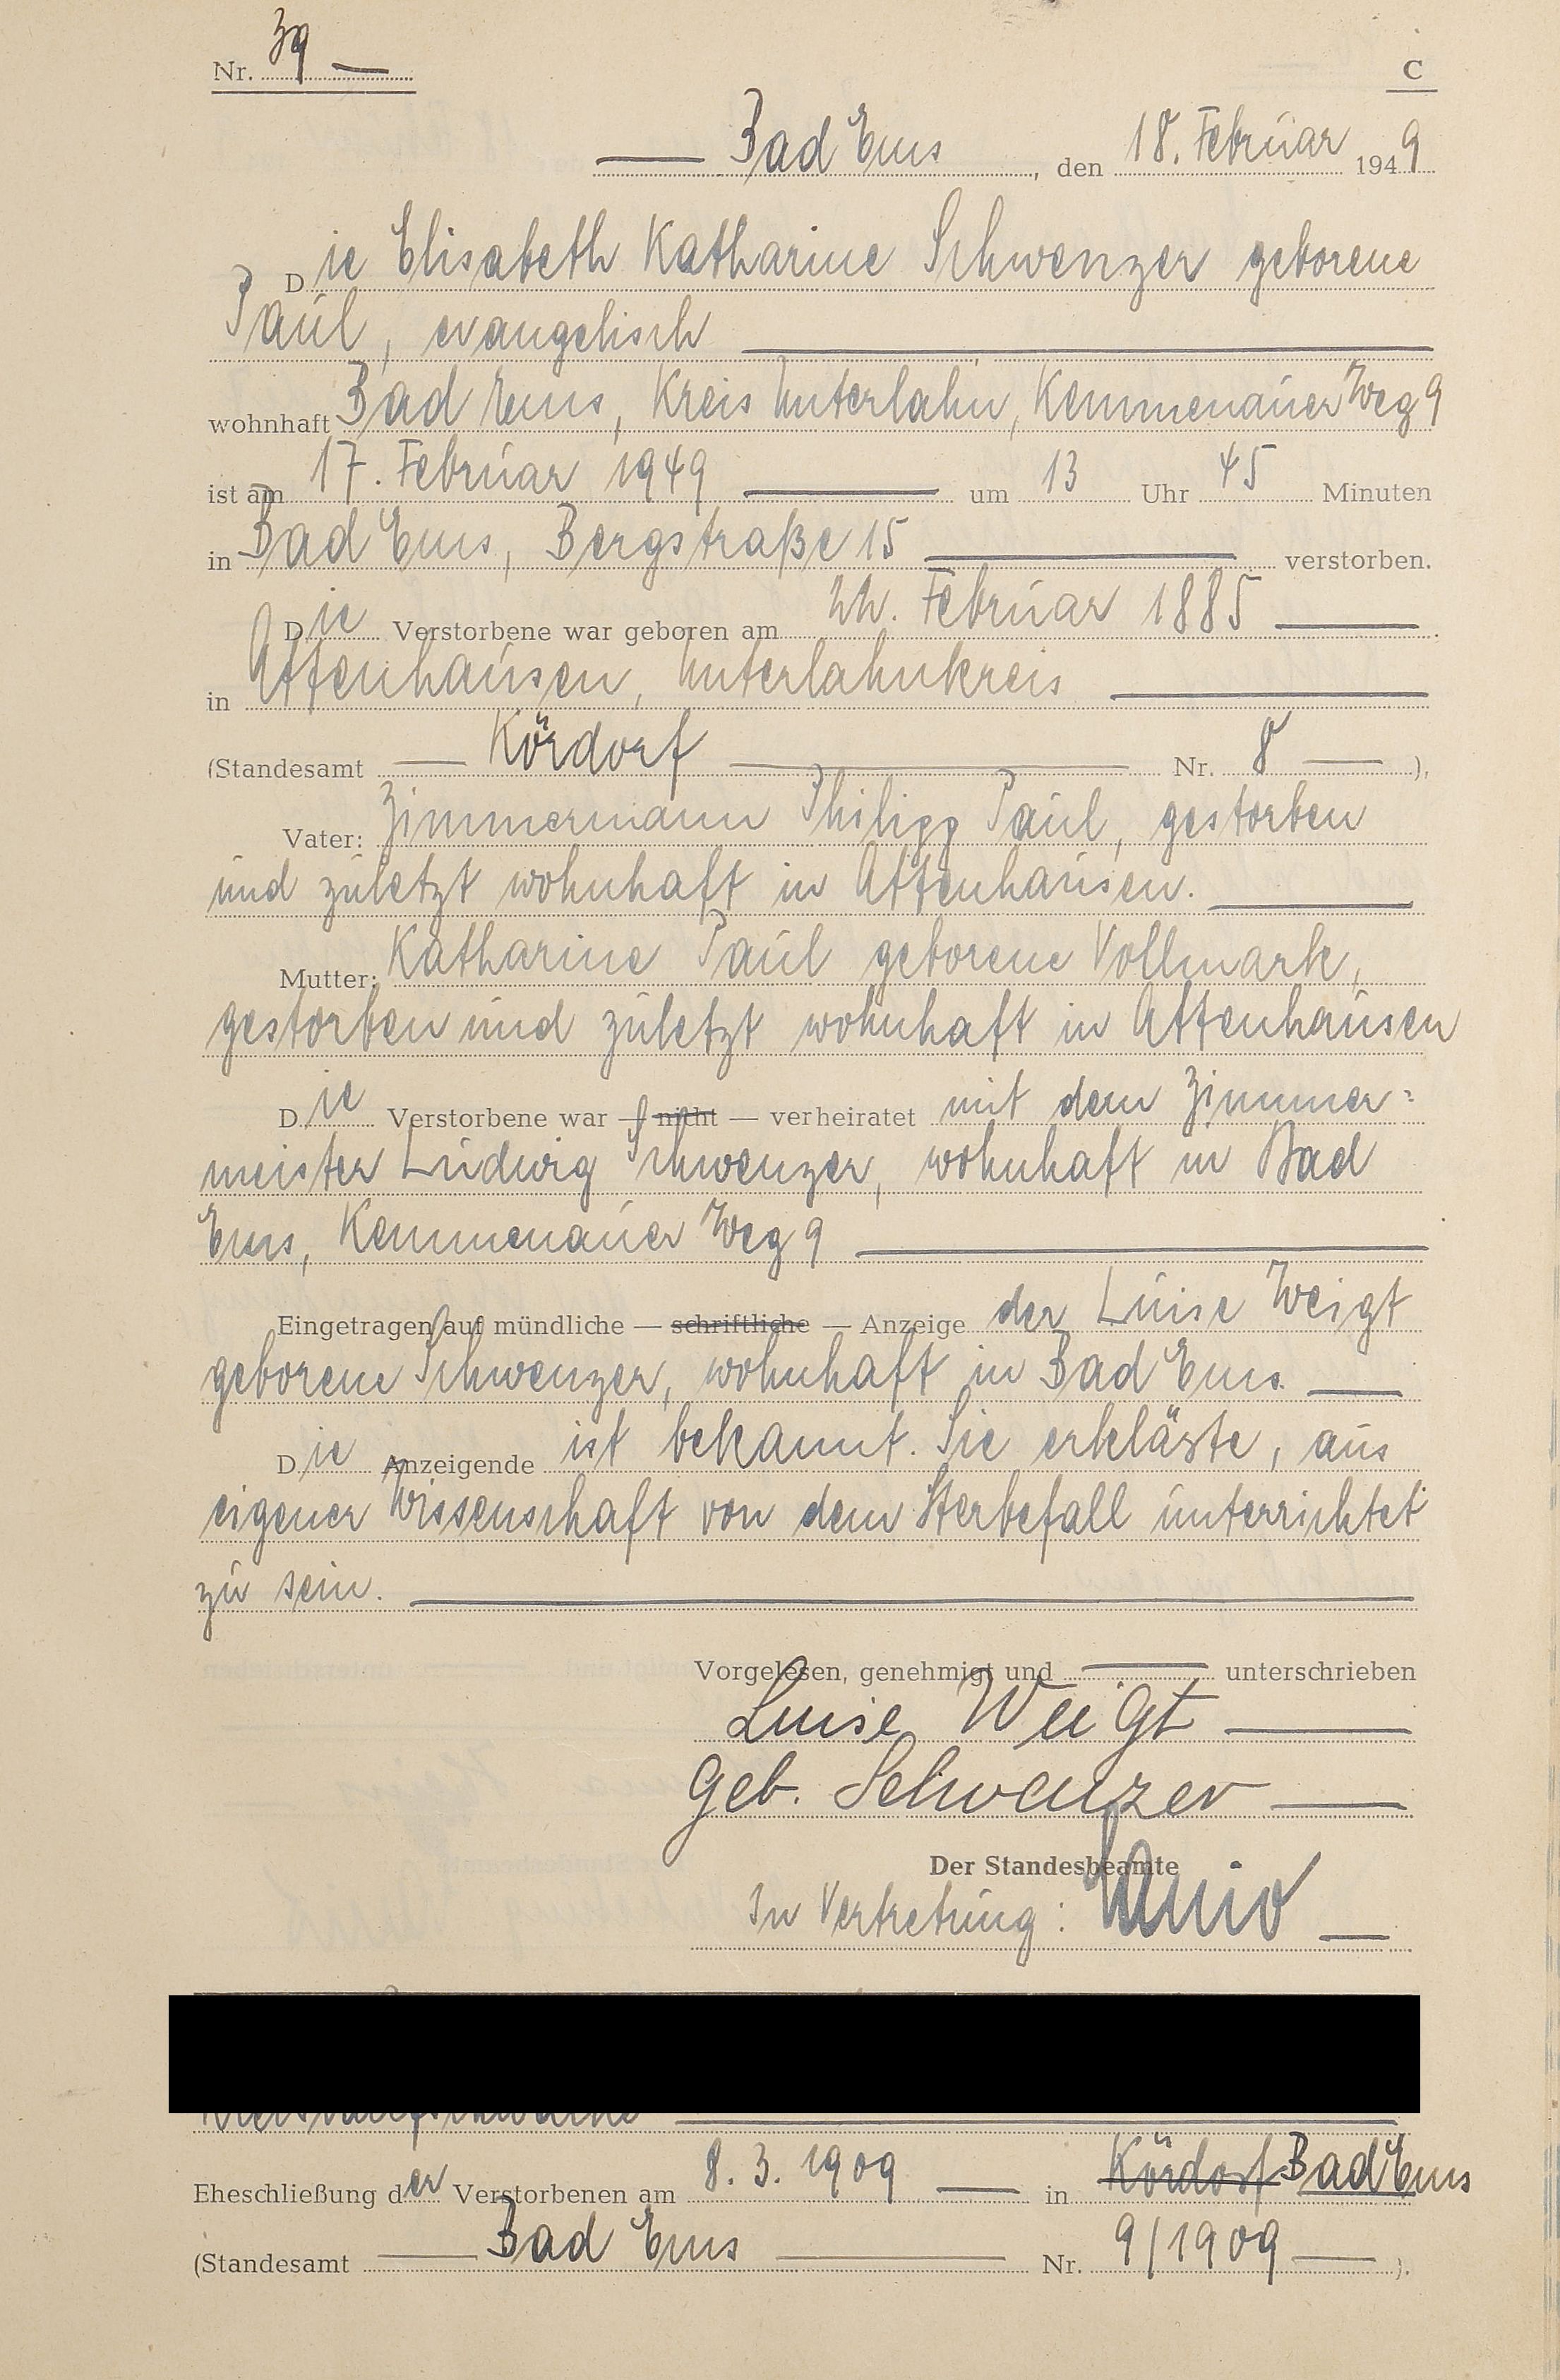 Nr. 39 —
C
— Bad Ems, den 18. Februar 1949
Die Elisabeth Katharine Schwenzer geborene
Paul, evangelisch
wohnhaft Bad Ems, Kreis Unterlahn, Kemmenauer Weg 9
ist am 17. Februar 1949 — um 13 Uhr 45 Minuten
in Bad Ems, Bergstraße 15 — verstorben.
Die Verstorbene war geboren am 22. Februar 1885 —
in Attenhausen, Unterlahnkreis —
(Standesamt — Kördorf — Nr. 8 — ),
Vater: Zimmermann Philipp Paul, gestorben
und zuletzt wohnhaft in Attenhausen. —
Mutter: Katharine Paul geborene Vollmark,
gestorben und zuletzt wohnhaft in Attenhausen
Die Verstorbene war — nicht — verheiratet mit dem Zimmer=
meister Ludwig Schwenzer, wohnhaft in Bad
Ems, Kemmenauer Weg 9 —
Eingetragen auf mündliche — schriftliche — Anzeige der Luise Weigt
geborene Schwenzer, wohnhaft in Bad Ems. —
Die Anzeigende ist bekannt. Sie erklärte, aus
eigener Wissenschaft von dem Sterbefall unterrichtet
zu sein. —
Vorgelesen, genehmigt und — unterschrieben
Luise Weigt —
geb. Schwenzer —
Der Standesbeamte
In Vertretung:
Eheschließung der Verstorbenen am 8. 3. 1909 — in Kördorf Bad Ems
(Standesamt — Bad Ems — Nr. 9/1909 — ).